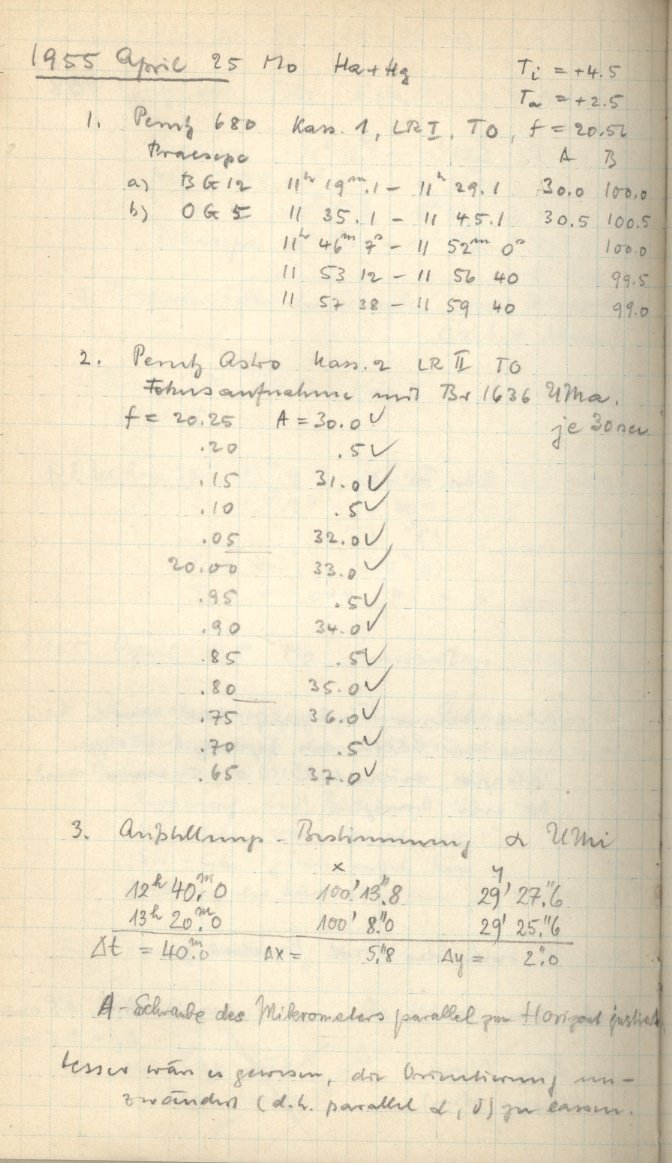 1955 April 25 Mo Ha+Hg Ti = +4.5
Ta = +2.5
1. Perutz 680 Kass. 1, LR I, TO, f = 20.50
Praesepe A B
a) BG 12 11ʰ 19ᵐ.1 – 11ʰ 29.1 30.0 100.0
b) OG 5 11 35.1 – 11 45.1 30.5 100.5
11ʰ 46ᵐ 7ˢ – 11 52ᵐ 0ˢ 100.0
11 53 12 – 11 56 40 99.5
11 57 38 – 11 59 40 99.0
2. Perutz Astro Kass. 2 LR II TO
Fokusaufnahme mit Br 1636 UMa.
je 30sec
f = 20.25 A = 30.0 ✓
.20 .5 ✓
.15 31.0 ✓
.10 .5 ✓
.05 32.0 ✓
20.00 33.0 ✓
.95 .5 ✓
.90 34.0 ✓
.85 .5 ✓
.80 35.0 ✓
.75 36.0 ✓
.70 .5 ✓
.65 37.0 ✓
3. Aufstellungs-Bestimmung α UMi
x y
12ʰ 40ᵐ.0 100' 13".8 29' 27".6
13ʰ 20ᵐ.0 100' 8".0 29' 25".6
Δt = 40ᵐ.0 Δx = 5".8 Δy = 2".0
A-Schraube des Mikrometers parallel zum Horizont justiert
besser wäre es gewesen, die Orientierung un-
verändert (d.h. parallel α, δ) zu lassen.